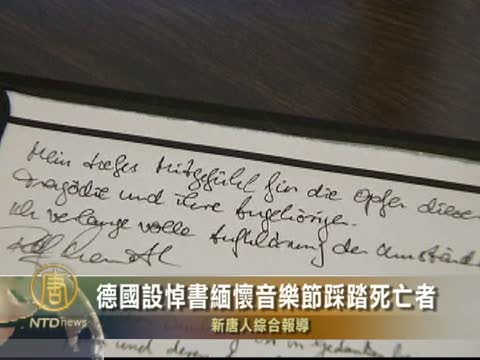 Mein tiefes Mitgefühl für die Opfer dieser
Tragödie und ihre Angehörigen.
Ich verlange volle Aufklärung der Umstände
唐
NTDnews
德國設悼書緬懷音樂節踩踏死亡者
新唐人綜合報導